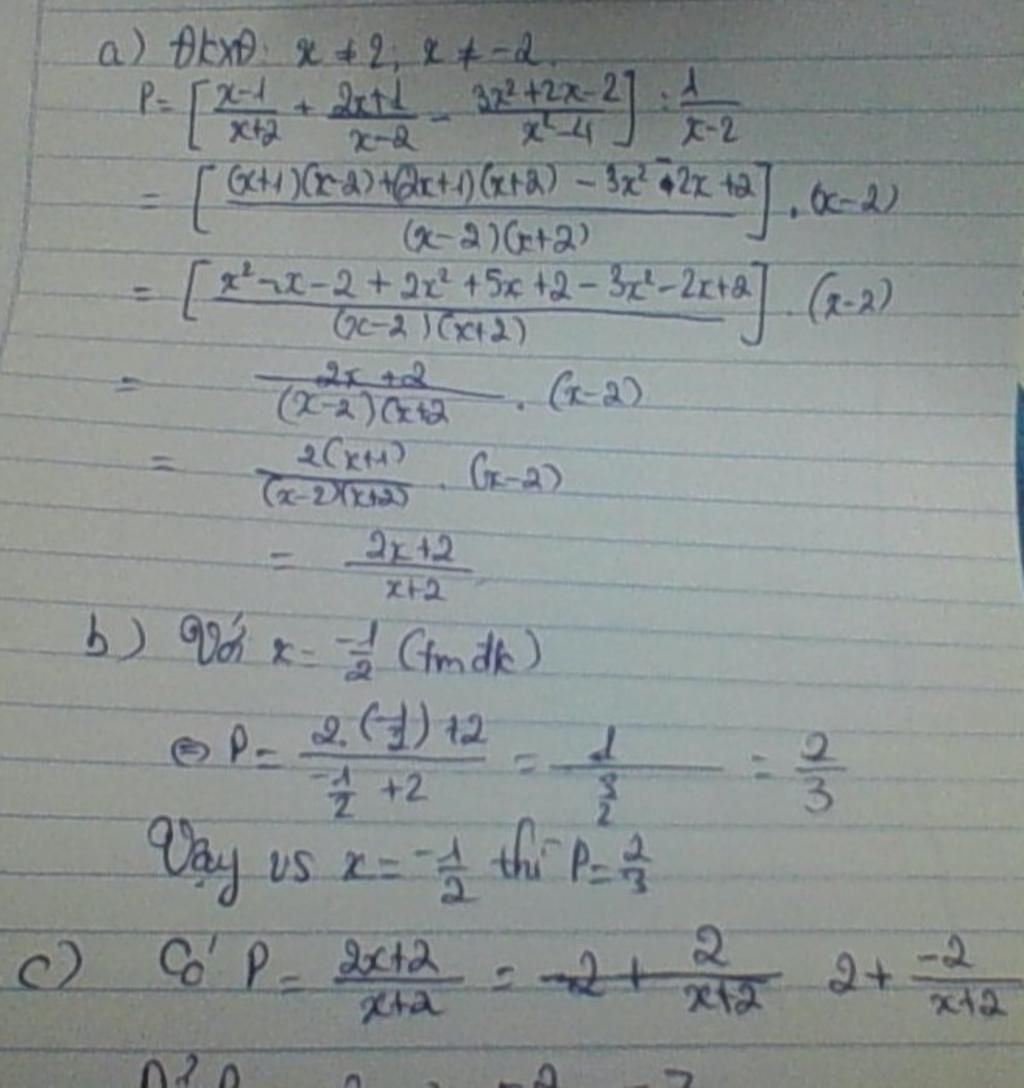 a) ĐKXĐ: x ≠ 2; x ≠ -2.
P = [ (x-1)/(x+2) + (2x+1)/(x-2) - (3x²+2x-2)/(x²-4) ] : 1/(x-2)
= [ ((x+1)(x-2)+(2x+1)(x+2) - 3x² - 2x +2)/((x-2)(x+2)) ] . (x-2)
= [ (x² -x -2 + 2x² +5x +2 - 3x² -2x+2)/((x-2)(x+2)) ] . (x-2)
= (2x +2)/((x-2)(x+2) . (x-2)
= 2(x+1)/((x-2)(x+2)) . (x-2)
= (2x+2)/(x+2)
b) Với x = -1/2 (tmđk)
⇔ P = (2.(-1/2)+2)/(-1/2 +2) = 1/(3/2) = 2/3
Vậy vs x = -1/2 thì P = 2/3
c) Có P = (2x+2)/(x+2) = 2 + -2/(x+2)